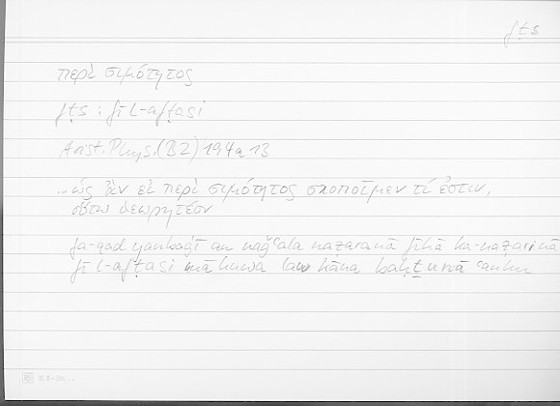 fṭs
περὶ σιμότητος
fṭs : fī l-afṭasi
Arist. Phys. (B2) 194a 13
... ὡς ἂν εἰ περὶ σιμότητος σκοποῖμεν τί ἐστιν,
οὕτω θεωρητέον
fa-qad yanbaġī an naǧʿala naẓaranā fīhā ka-naẓarinā
fī l-afṭasi mā huwa law kāna baḥṯunā ʿanhu